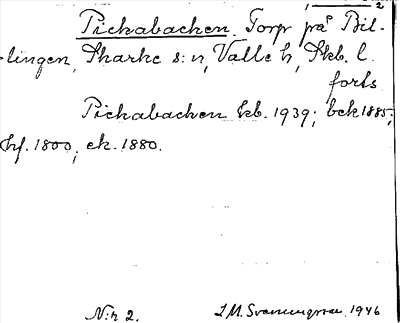 2
Pickabacken. Torp på Bil-
lingen, Skarke s:n, Valle h, Skb. l.
forts.
Pickabacken kb. 1939; bek 1885;
hf. 1800; ek. 1880.
N:r 2. 1946